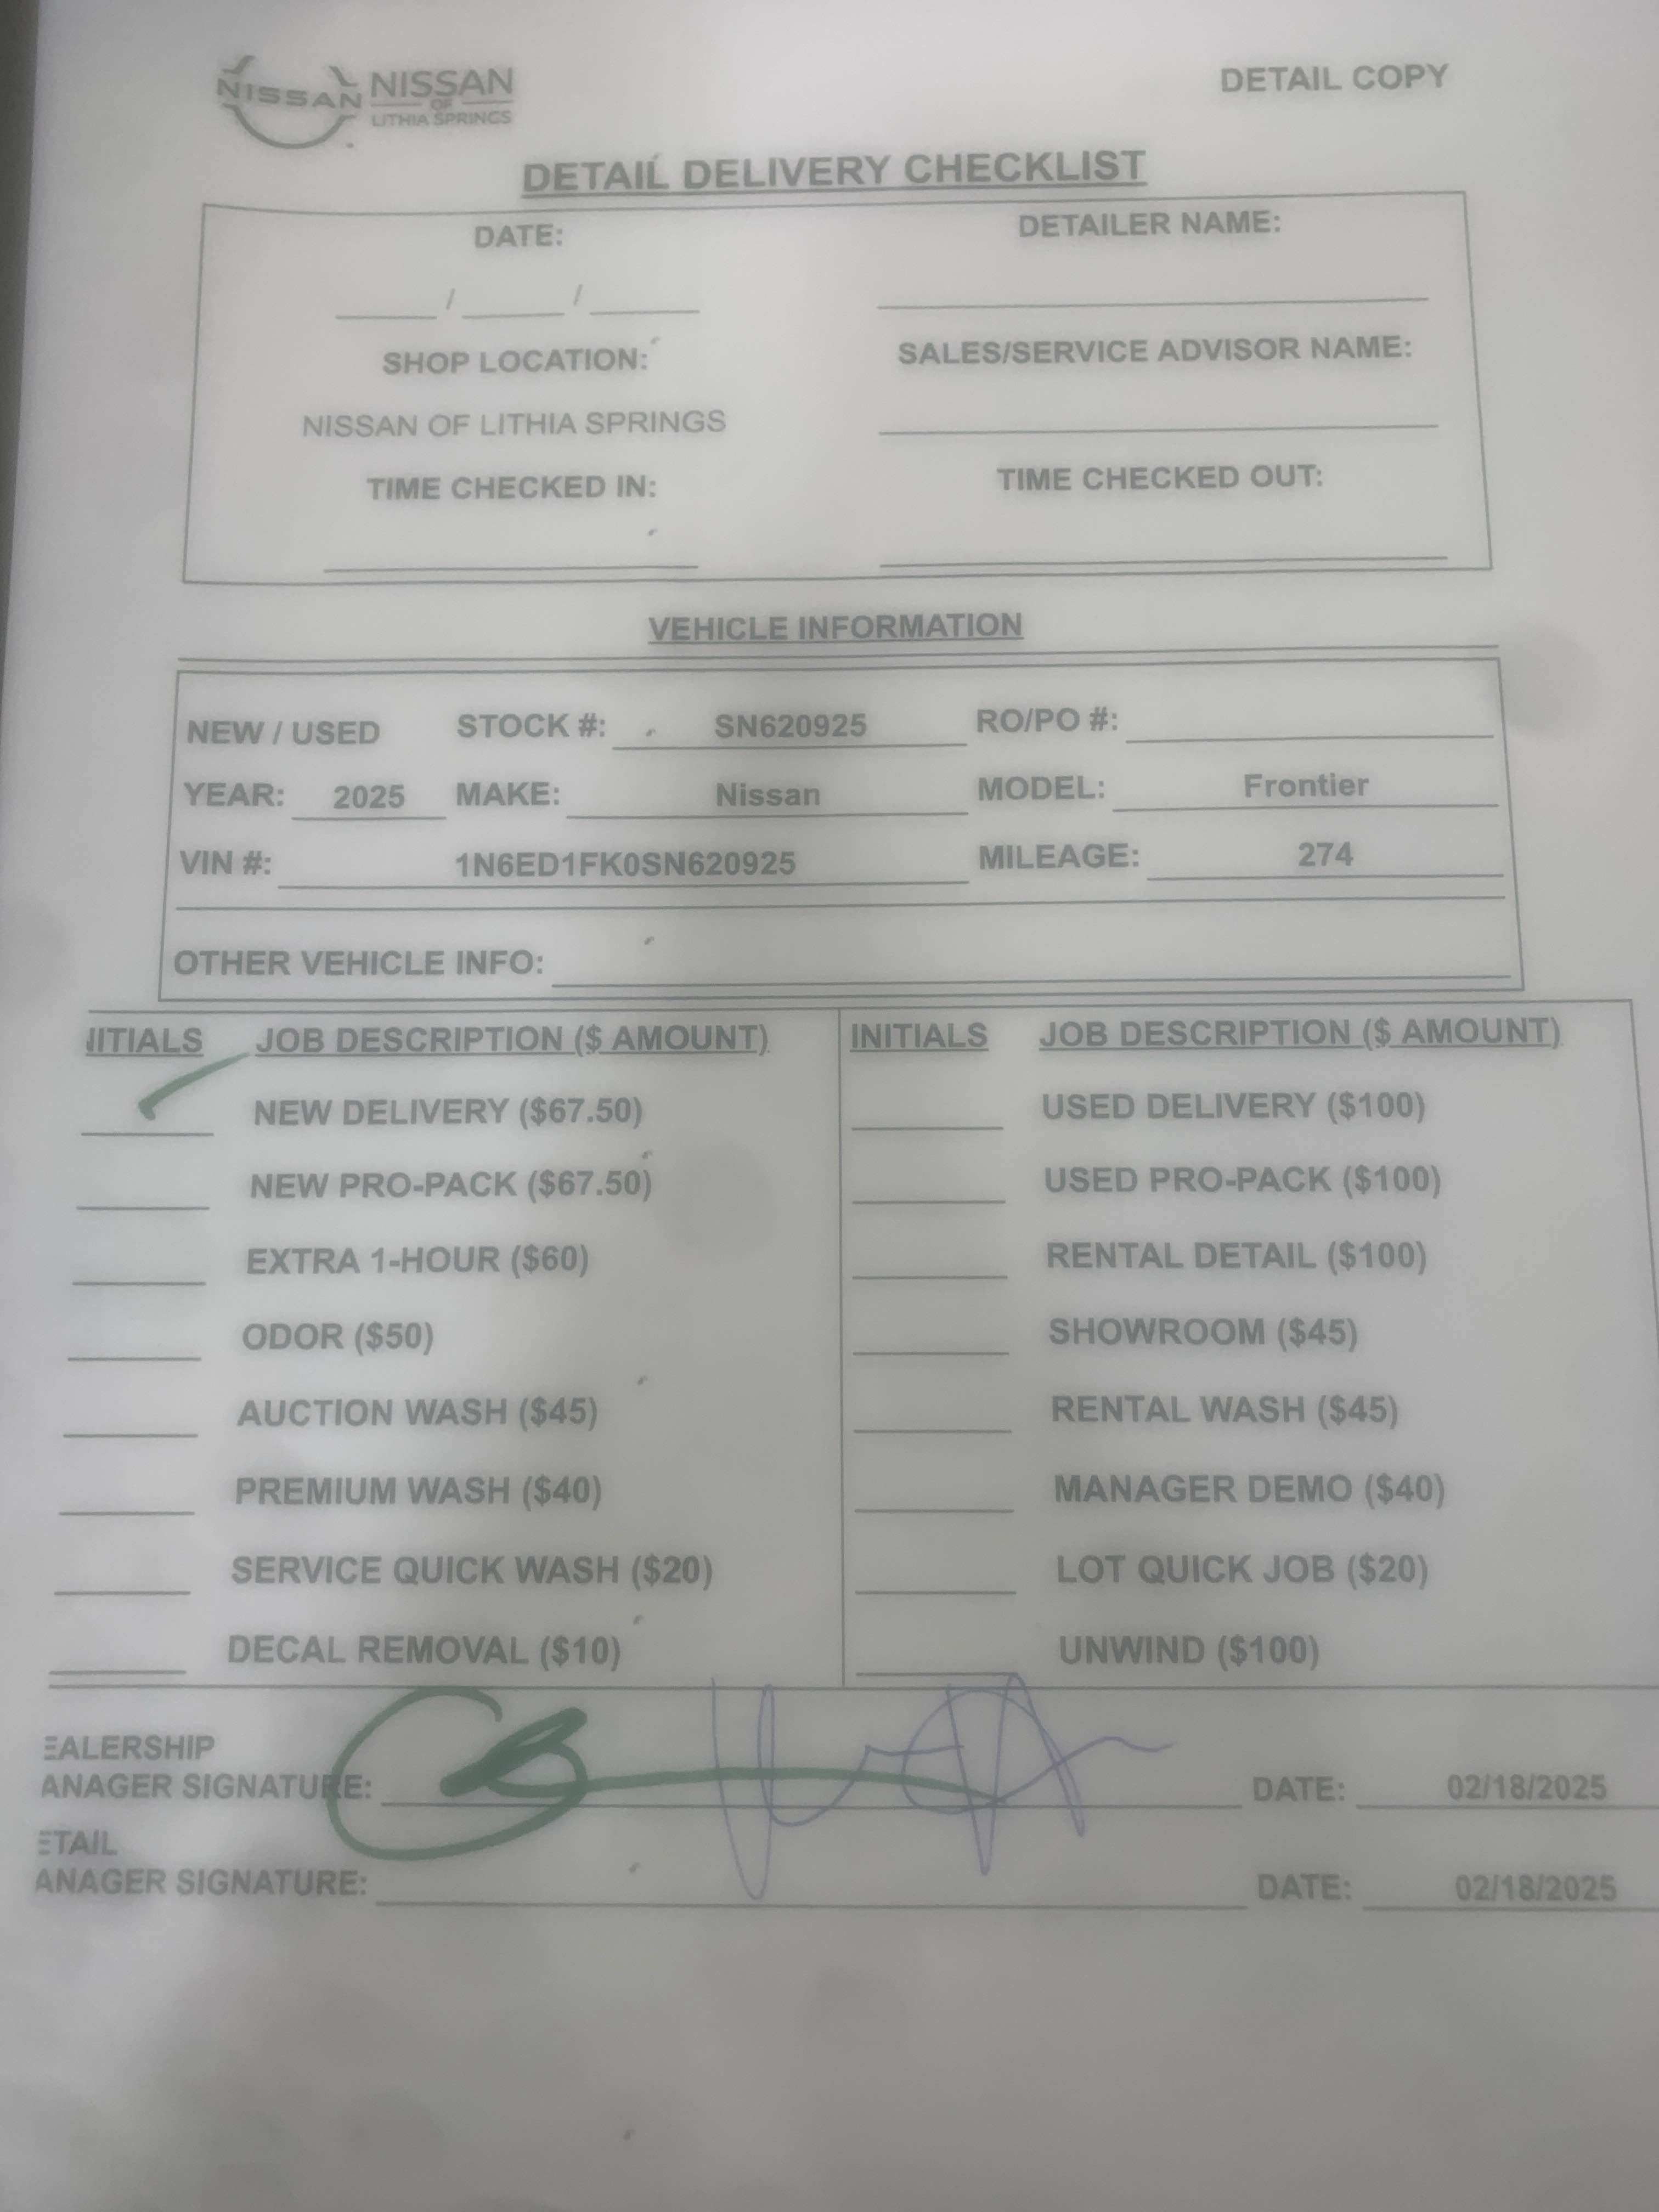 NISSAN
NISSAN
OF
LITHIA SPRINGS
DETAIL COPY
DETAIL DELIVERY CHECKLIST
DATE: DETAILER NAME:
/ /
SHOP LOCATION: SALES/SERVICE ADVISOR NAME:
NISSAN OF LITHIA SPRINGS
TIME CHECKED IN: TIME CHECKED OUT:
VEHICLE INFORMATION
NEW / USED STOCK #: SN620925 RO/PO #:
YEAR: 2025 MAKE: Nissan MODEL: Frontier
VIN #: 1N6ED1FK0SN620925 MILEAGE: 274
OTHER VEHICLE INFO:
NITIALS JOB DESCRIPTION ($ AMOUNT) INITIALS JOB DESCRIPTION ($ AMOUNT)
NEW DELIVERY ($67.50) USED DELIVERY ($100)
NEW PRO-PACK ($67.50) USED PRO-PACK ($100)
EXTRA 1-HOUR ($60) RENTAL DETAIL ($100)
ODOR ($50) SHOWROOM ($45)
AUCTION WASH ($45) RENTAL WASH ($45)
PREMIUM WASH ($40) MANAGER DEMO ($40)
SERVICE QUICK WASH ($20) LOT QUICK JOB ($20)
DECAL REMOVAL ($10) UNWIND ($100)
EALERSHIP
ANAGER SIGNATURE: DATE: 02/18/2025
ETAIL
ANAGER SIGNATURE: DATE: 02/18/2025